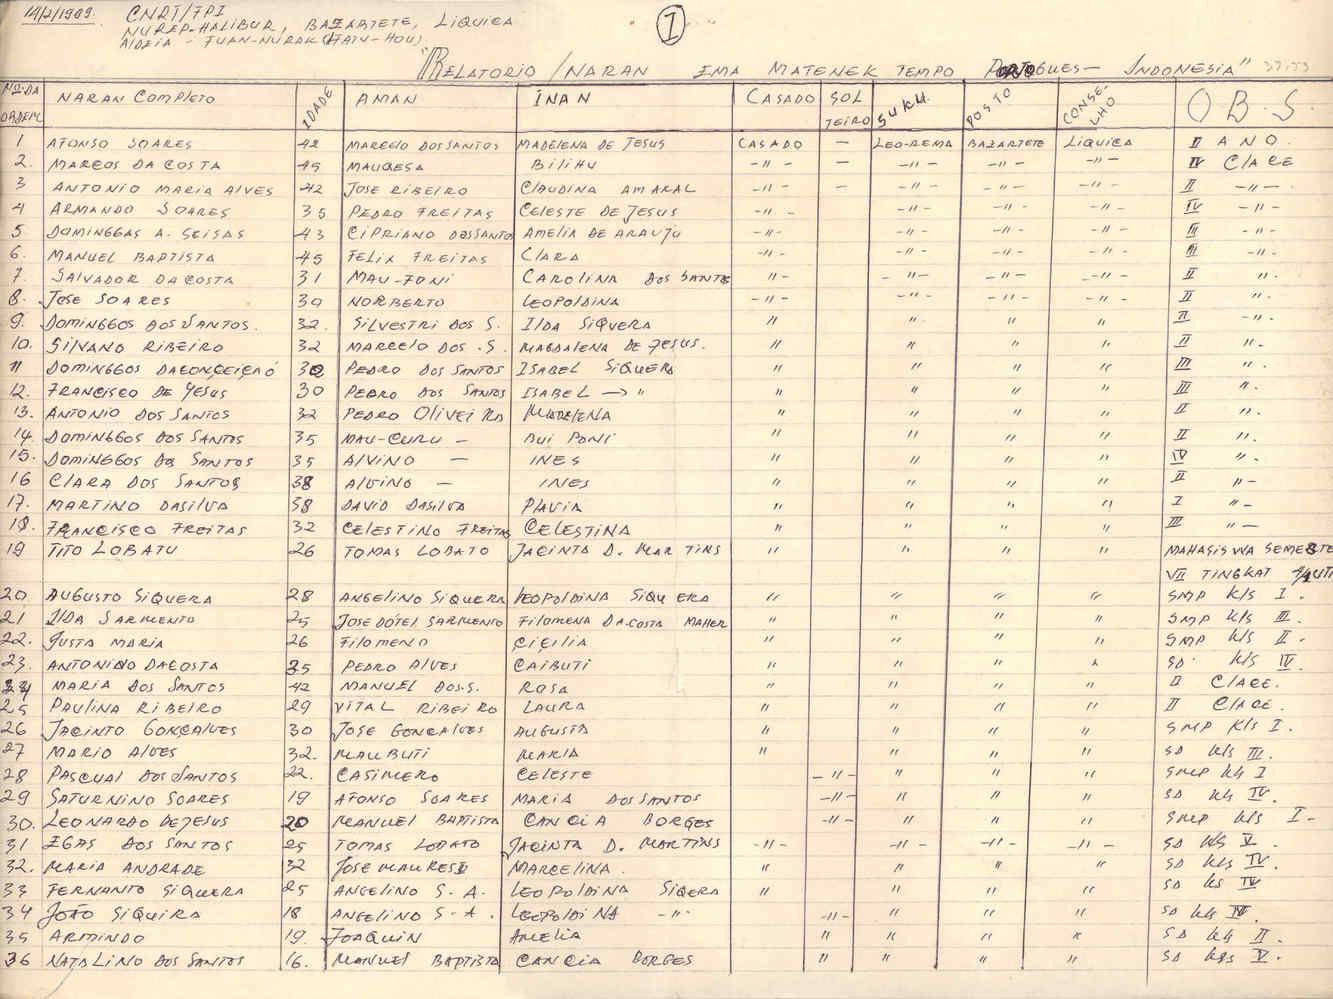 14/2/1999. CNRT/FPI
NUREP-HALIBUR, BAZARTETE, LIQUICA
ALDEIA - FUAN-NURAK (FATU-HOU)
I
"RELATORIO/NARAN EMA MATENEK TEMPO PORTOGUES - INDONESIA"
Nº DA ORDEM NARAN COMPLETO IDADE AMAN INAN CASADO SOLTEIRO SUKU. POSTO CONSELHO O B.S.
1 AFONSO SOARES 42 MARCELO DOS SANTOS MADELENA DE JESUS CASADO — LEO-REMA BAZARTETE LIQUICA II ANO.
2. MARCOS DA COSTA 45 MAUQESA BILIHU -"- — -"- -"- -"- IV CLACE
3 ANTONIO MARIA ALVES 42 JOSE RIBEIRO CLAUDINA AMARAL -"- — -"- -"- -"- II -"-
4 ARMANDO SOARES 35 PEDRO FREITAS CELESTE DE JESUS -"- -"- -"- -"- IV -"-
5. DOMINGGAS A. SEISAS 43 CIPRIANO DOS SANTOS AMELIA DE ARAUJO -"- -"- -"- -"- III -"-
6. MANUEL BAPTISTA 45 FELIX FREITAS CLARA -"- -"- -"- -"- III -"-
7. SALVADOR DA COSTA 31 MAU-FONI CAROLINA DOS SANTOS "- -"- -"- -"- II ".
8. JOSE SOARES 30 NORBERTO LEOPOLDINA -"- -"- -"- -"- II ".
9. DOMINGGOS DOS SANTOS. 32. SILVESTRI DOS S. ILDA SIQUERA " " " " II -".
10. SILVANO RIBEIRO 32 MARCELO DOS .S. MAGDALENA DE JESUS. " " " " II ".
11 DOMINGGOS DACONÇEIÇAÓ 30 PEDRO DOS SANTOS ISABEL SIQUERA " " " " III ".
12. FRANCISCO DE JESUS 30 PEDRO DOS SANTOS ISABEL → " " " " " III ".
13. ANTONIO DOS SANTOS 32 PEDRO OLIVEIRA MADELENA " " " " II ".
14. DOMINGGOS DOS SANTOS 35 MAU-CURU — BUI PONI " " " " II ".
15. DOMINGGOS DOS SANTOS 35 ALVINO — INES " " " " IV ".
16 CLARA DOS SANTOS 38 ALVINO — INES " " " " II "-
17. MARTINO DASILVA 38 DAVID DASILVA FLAVIA " " " " I "-
18. FRANCISCO FREITAS 32 CELESTINO FREITAS CELESTINA " " " " III "-
19 TITO LOBATU 26 TOMAS LOBATO JACINTA D. MARTINS " " " " MAHASISWA SEMESTE
VII TINGKAT
20. AUGUSTO SIQUERA 28 ANGELINO SIQUERA LEOPOLDINA SIQUERA " " " " SMP kls I.
21 ILDA SARMENTO 25 JOSE DÓTEL SARMENTO FILOMENA DACOSTA MAHER " " " " SMP kls III.
22. JUSTA MARIA 26 FILOMENO ÇIÇILIA " " " " SMP kls II.
23. ANTONINO DACOSTA 35 PEDRO ALVES CAIBUTI " " " " SD. kls IV.
24 MARIA DOS SANTOS 42 MANUEL DOS.S. ROSA " " " " II CLACE.
25 PAULINA RIBEIRO 29 VITAL RIBEIRO LAURA " " " " II CLACE.
26 JACINTO GONÇALVES 30 JOSE GONCALVES AUGUSTA " " " " SMP kls I.
27 MARIO ALVES 32. MAUBUTI MARIA " " " " SD kls III.
28 PASCUAL DOS SANTOS 22. CASIMERO CELESTE -"- " " " SMP kls I
29 SATURNINO SOARES 19 AFONSO SOARES MARIA DOS SANTOS -"- " " " SD kls IV.
30. LEONARDO DEJESUS 20 MANUEL BAPTISTA CANCIA BORGES -"- " " " SMP kls I-
31 EGAS DOS SANTOS 25 TOMAS LOBATO JACINTA D. MARTINS -"- -"- -"- -"- SD kls V.
32. MARIA ANDRADE 32 JOSE MAURESI MARCELINA. " " " " SD kls IV.
33 FERNANTO SIQUERA 25 ANGELINO S.A. LEOPOLDINA SIQERA " " " " SD ks IV
34 JOÃO SIQUIRA 18 ANGELINO S-A. LEOPOLDINA -"- -"- " " " SD kls IV.
35 ARMINDO 19. JOAQUIN AMELIA " " " " SD kls II.
36 NATALINO DOS SANTOS 16. MANUEL BAPTISTA CANCIA BORGES " " " " SD kls V.